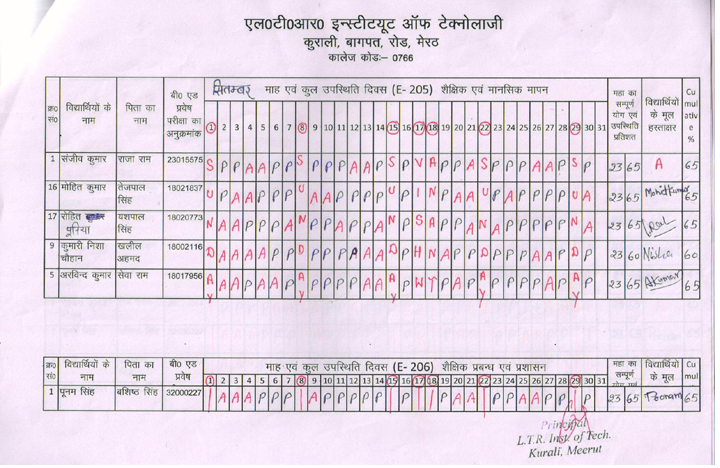 एल0टी0आर0 इन्स्टीटयूट ऑफ टेक्नोलाजी
कुराली, बागपत, रोड, मेरठ
कालेज कोड:– 0766
क्र0 सं0 विद्यार्थियों के नाम पिता का नाम बी0 एड प्रवेष परीक्षा का अनुक्रमांक सितम्बर माह एवं कुल उपस्थिति दिवस (E- 205) शैक्षिक एवं मानसिक मापन महा का सम्पूर्ण योग एवं उपस्थिति प्रतिशत विद्यार्थियों के मूल हस्ताक्षर Cu mul ativ e %
1 2 3 4 5 6 7 8 9 10 11 12 13 14 15 16 17 18 19 20 21 22 23 24 25 26 27 28 29 30 31
1 संजीव कुमार राजा राम 23015575 S P P A A P P S P P P A A P S P V A P A A S P P P A A P S P 23 65 A 65
16 मोहित कुमार तेजपाल सिंह 18021837 U P A A P P P U A A P P P P U P I N P A A U P A P P P P U A 23 65 Mohit Kumar 65
17 रोहित पूरिया यशपाल सिंह 18020773 N A A P P P A N P P A P P A N P S A P A A N A P P P P P N A 23 65 65
9 कुमारी निशा चौहान खलील अहमद 18002116 D A A A A P P D P P P A A A D P H N A P P D P P P P A A D P 23 60 Nisha 60
5 अरविन्द कुमार सेवा राम 18017956 A A A P A A P A P P P P A A A P W T P A P A P P P P A P A P 23 65 AKumar 65
Y Y Y Y Y
क्र0 सं0 विद्यार्थियों के नाम पिता का नाम बी0 एड प्रवेष माह एवं कुल उपस्थिति दिवस (E- 206) शैक्षिक प्रबन्ध एवं प्रशासन महा का सम्पूर्ण विद्यार्थियों के मूल Cu mul
1 2 3 4 5 6 7 8 9 10 11 12 13 14 15 16 17 18 19 20 21 22 23 24 25 26 27 28 29 30 31
1 पूनम सिंह बशिष्ठ सिंह 32000227 A A A P P P A P P P P P P P A A P P A A P P P 23 65 Poonam 65
Principal
L.T.R. Inst. of Tech.
Kurali, Meerut